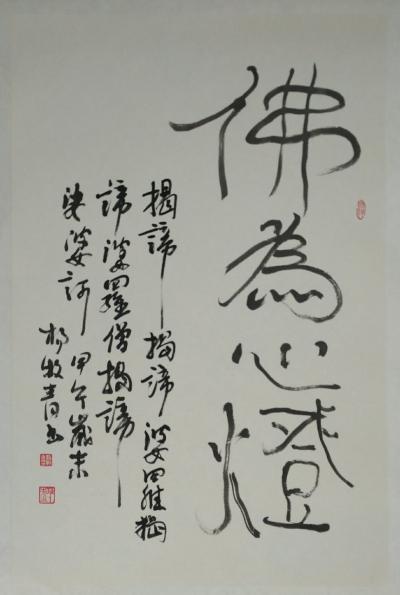 佛為心燈
揭諦揭諦婆羅揭
諦婆羅僧揭諦
娑婆訶
甲午歲末
楊牧青書